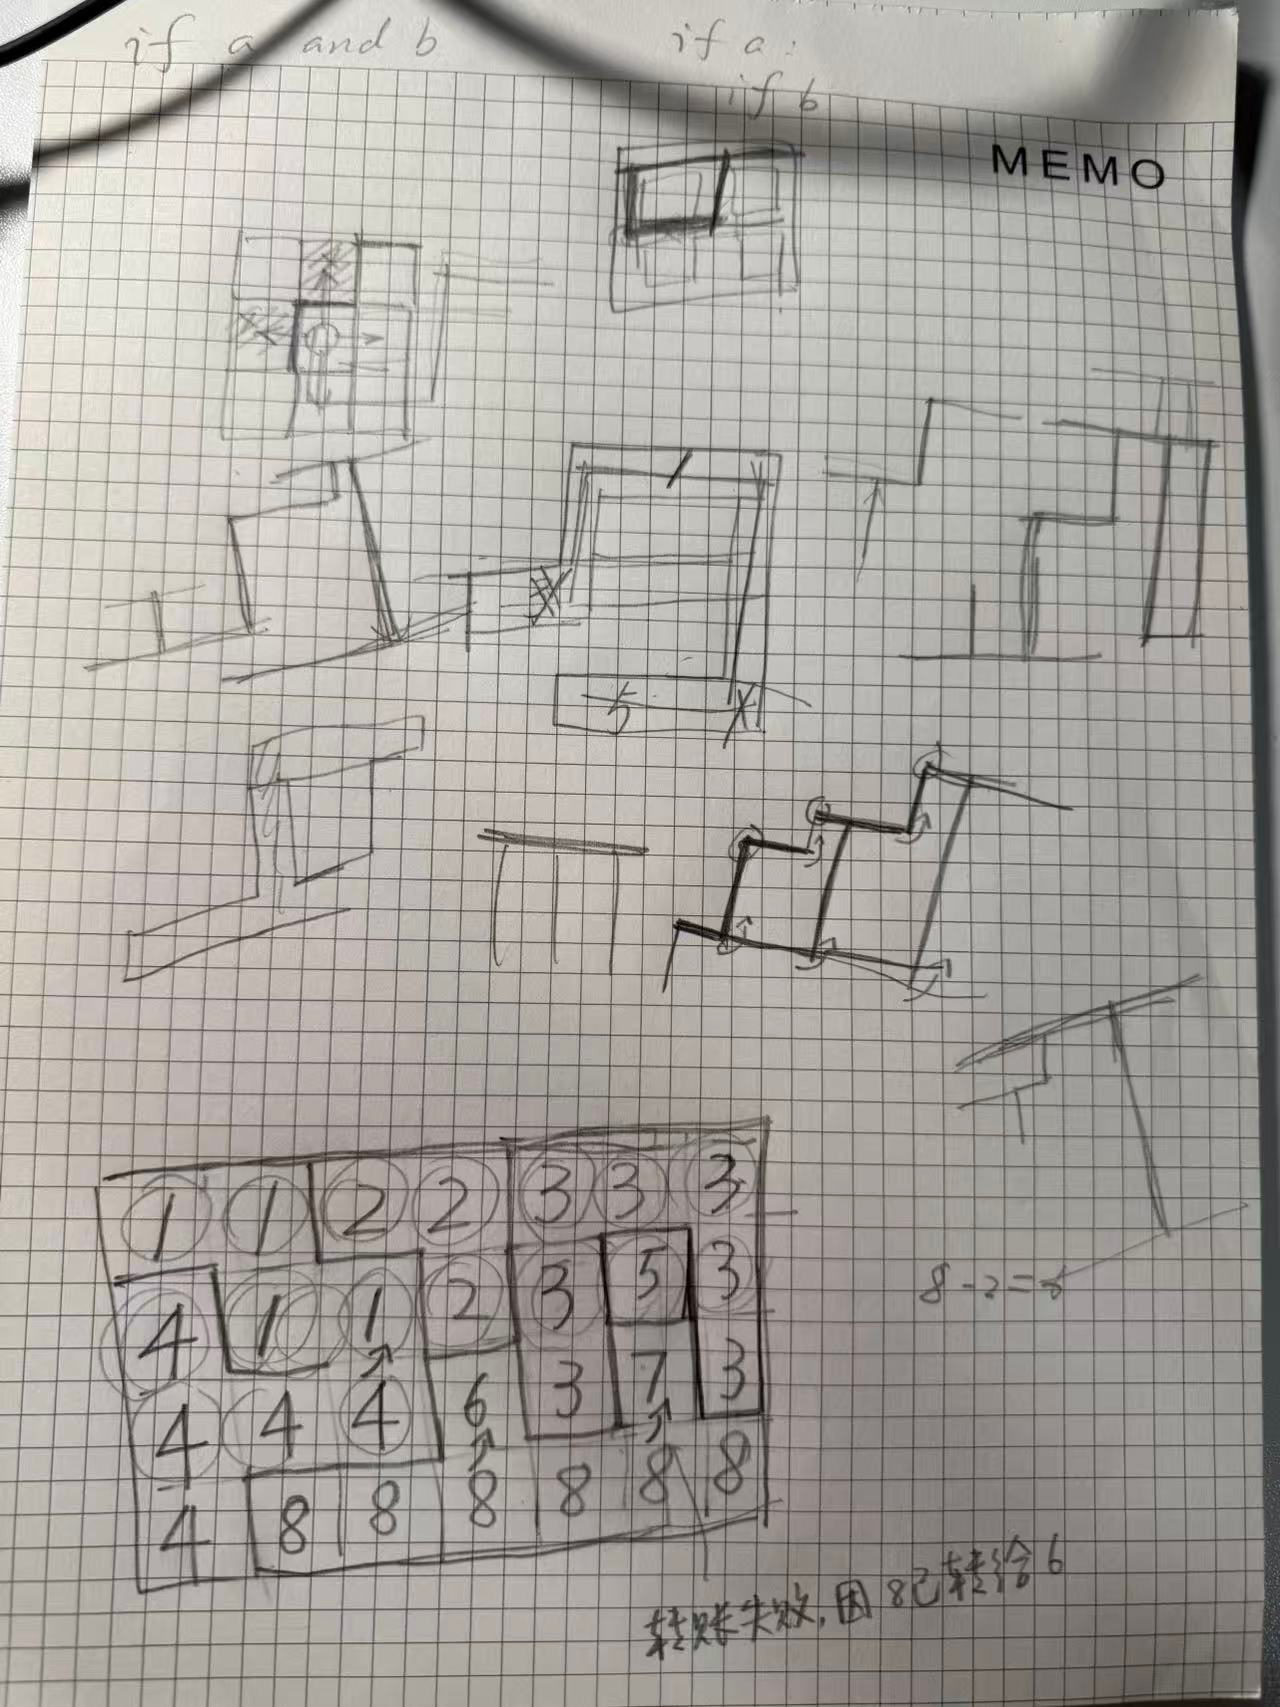 if a and b
if a:
if b
MEMO
5
1 1 2 2 3 3 3
4 1 1 2 3 5 3
4 4 4 6 3 7 3
4 8 8 8 8 8 8
8-2=6
转账失败,因8已转给6